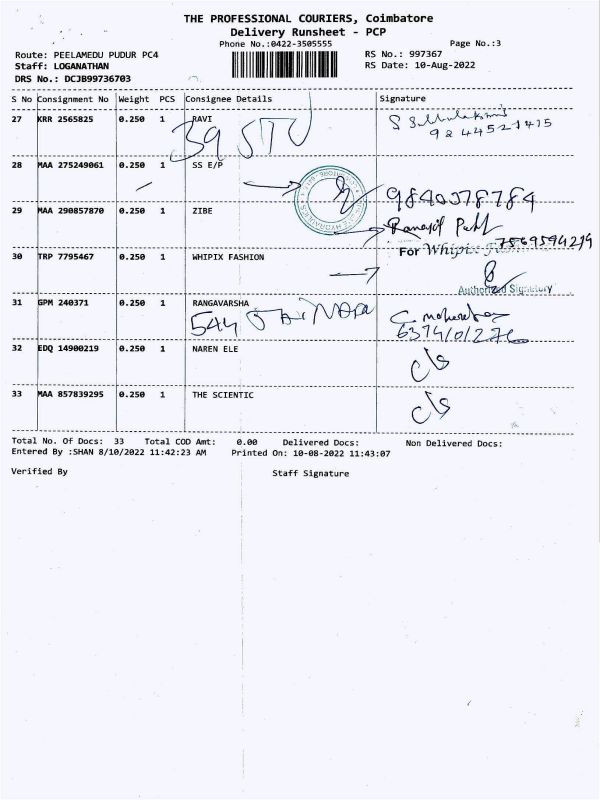 THE PROFESSIONAL COURIERS, Coimbatore
Delivery Runsheet - PCP
Phone No.:0422-3505555
Page No.:3
Route: PEELAMEDU PUDUR PC4
RS No.: 997367
Staff: LOGANATHAN
RS Date: 10-Aug-2022
DRS No.: DCJB99736703
S No Consignment No Weight PCS Consignee Details Signature
27 KRR 2565825 0.250 1 RAVI
9244521415
39 STU
28 MAA 275249061 0.250 1 SS E/P
9840378784
29 MAA 290857870 0.250 1 ZIBE
7569594214
For Whipix
30 TRP 7795467 0.250 1 WHIPIX FASHION
Authorized Signatory
31 GPM 240371 0.250 1 RANGAVARSHA
544
6374101276
32 EDQ 14900219 0.250 1 NAREN ELE
c/s
33 MAA 857839295 0.250 1 THE SCIENTIC
c/s
Total No. Of Docs: 33 Total COD Amt: 0.00 Delivered Docs: Non Delivered Docs:
Entered By :SHAN 8/10/2022 11:42:23 AM Printed On: 10-08-2022 11:43:07
Verified By Staff Signature